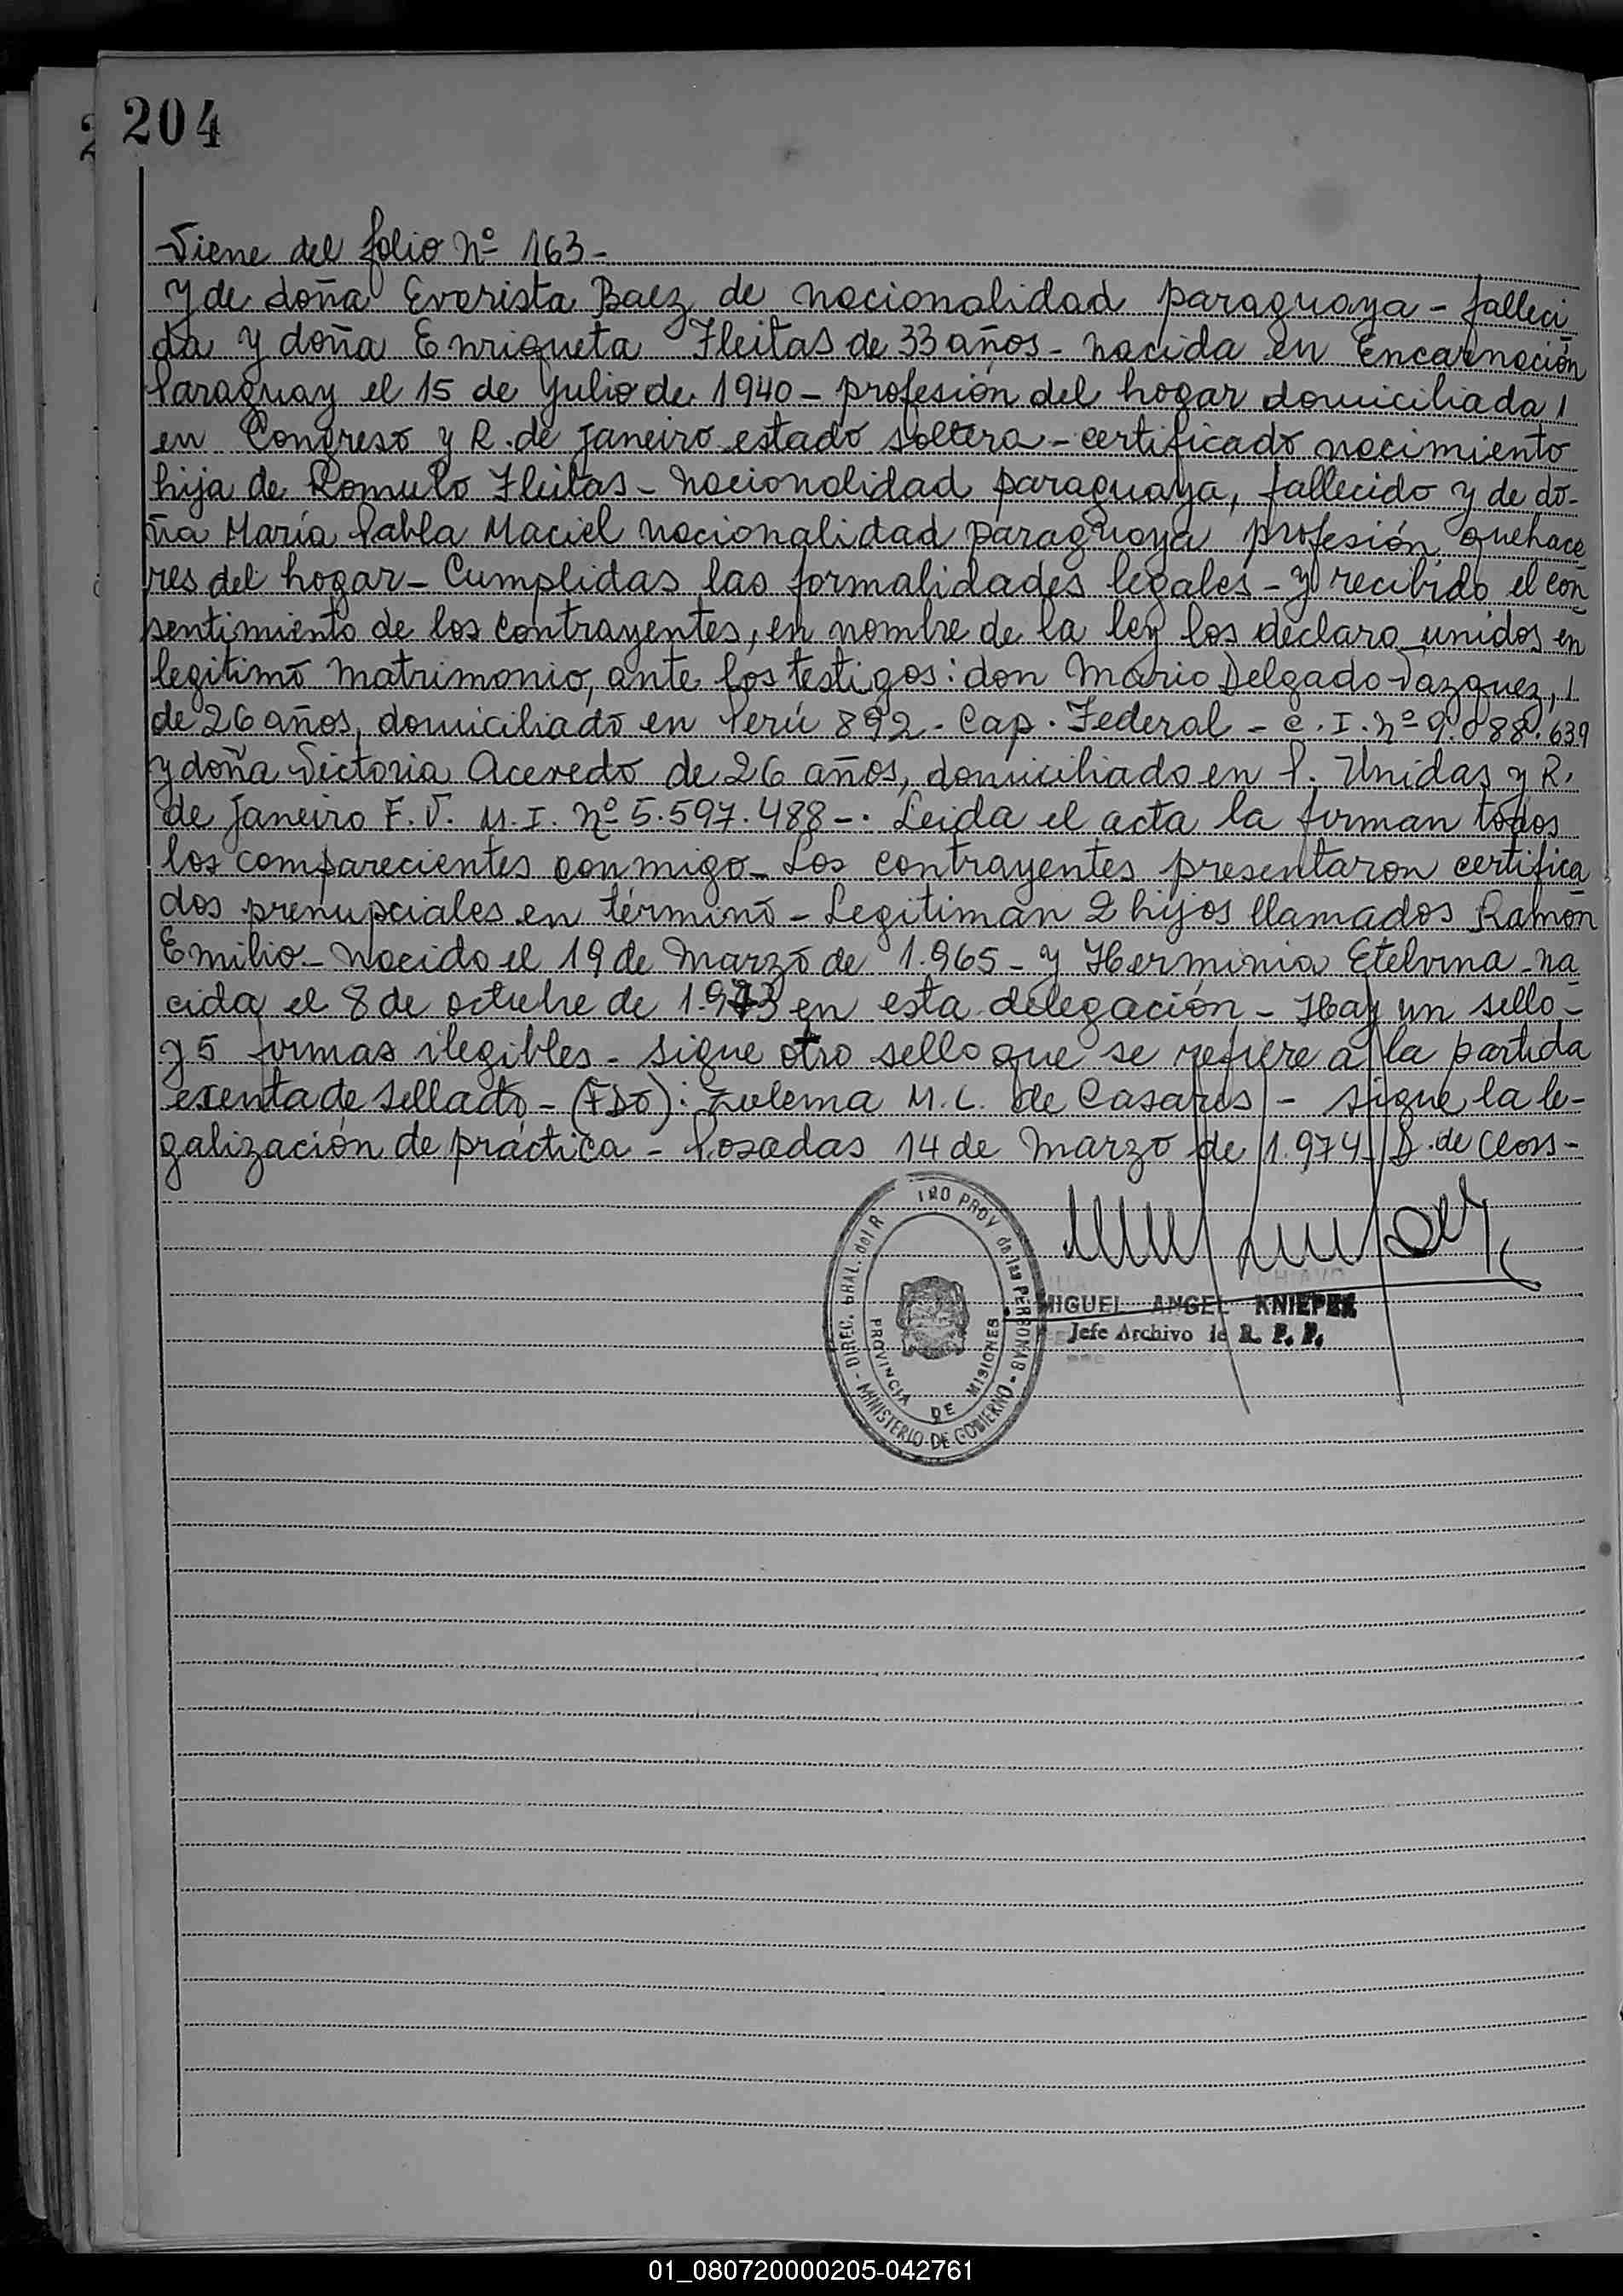 204
Viene del folio Nº 163-
Y de doña Evarista Baez de nacionalidad paraguaya - falleci
da y doña Enriqueta Fleitas de 33 años - nacida en Encarnación
Paraguay el 15 de Julio de 1940 - profesión del hogar domiciliada
en Congreso y R. de Janeiro estado soltera - certificado nacimiento
hija de Romulo Fleitas - nacionalidad paraguaya, fallecido y de do-
ña María Pabla Maciel nacionalidad paraguaya profesión quehace
res del hogar - Cumplidas las formalidades legales - y recibido el con
sentimiento de los contrayentes, en nombre de la ley los declaro unidos en
legitimo matrimonio, ante los testigos: don Mario Delgado Vazquez,
de 26 años, domiciliado en Perú 892 - Cap. Federal - C. I. Nº 9.088.639
y doña Victoria Acevedo de 26 años, domiciliado en P. Unidas y R.
de Janeiro F. V. M. I. Nº 5.597.488 -. Leida el acta la firman todos
los comparecientes conmigo - Los contrayentes presentaron certifica
dos prenupciales en término - Legitiman 2 hijos llamados Ramón
Emilio - nacido el 19 de Marzo de 1.965 - y Herminia Etelvina - na
cida el 8 de octubre de 1.973 en esta delegación - Hay un sello -
y 5 firmas ilegibles - sigue otro sello que se refiere a la partida
exenta de sellado - (FDO): Zulema M. C. de Casares - sigue la le-
galización de práctica - Posadas 14 de Marzo de 1.974 - S. de Closs -
DIREC. GRAL. del R TRO PROV de las PERSONAS - MINISTERIO DE GOBIERNO -
PROVINCIA DE MISIONES
MIGUEL ANGEL KNIEPEK
Jefe Archivo de R. P. P.
01_080720000205-042761